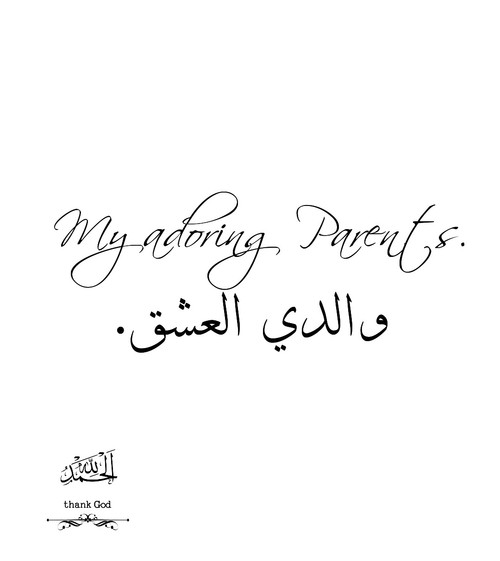 My adoring Parents.
والدي العشق.
الحمد لله
thank God